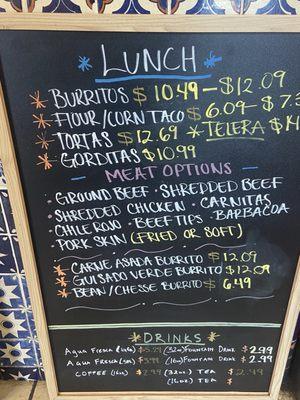 LUNCH
BURRITOS $10.49 - $12.09
FLOUR/CORN TACO $6.09 - $7.3
TORTAS $12.69 *TELERA $14
GORDITAS $10.99
MEAT OPTIONS
· GROUND BEEF · SHREDDED BEEF
· SHREDDED CHICKEN · CARNITAS
· CHILE ROJO · BEEF TIPS · BARBACOA
· PORK SKIN (FRIED OR SOFT)
CARNE ASADA BURRITO $12.09
GUISADO VERDE BURRITO $12.09
BEAN/CHESSE BURRITO $6.49
DRINKS
AQUA FRESCA (32oz) $5.29 (32oz) FOUNTAIN DRINK $2.99
AQUA FRESCA $3.99 (16oz) FOUNTAIN DRINK $2.99
COFFEE (16oz) $2.99 (32oz) TEA $2.49
(16oz) TEA $